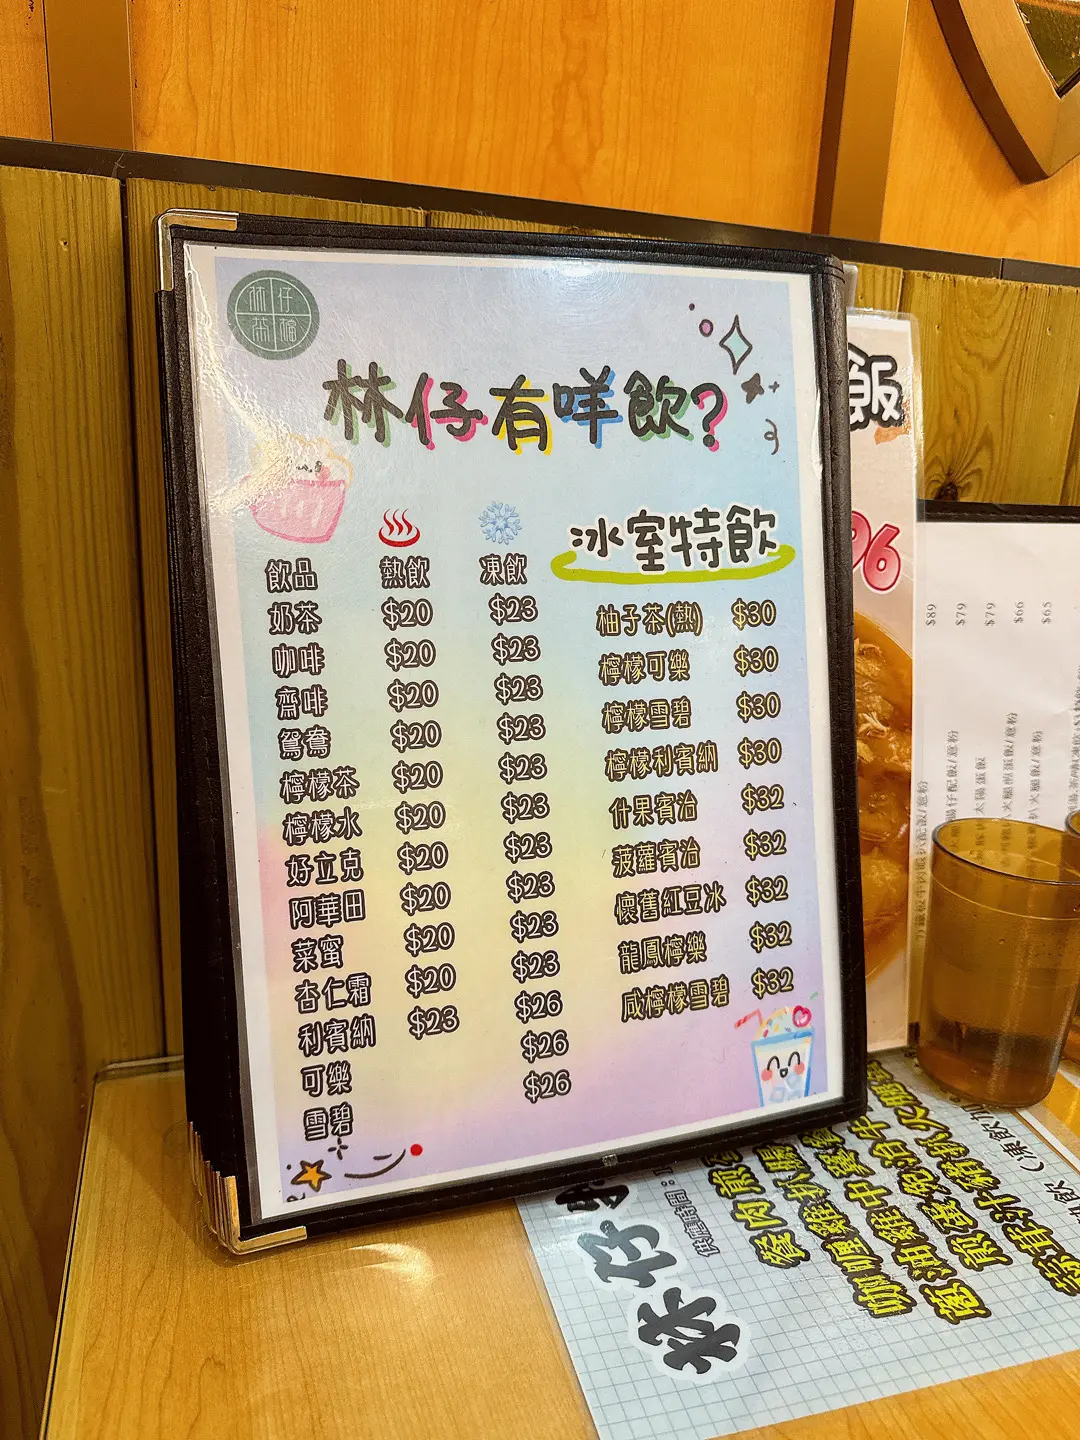 林仔茶檔
林仔有咩飲?
飲品 熱飲 凍飲
奶茶 $20 $23
咖啡 $20 $23
齋啡 $20 $23
鴛鴦 $20 $23
檸檬茶 $20 $23
檸檬水 $20 $23
好立克 $20 $23
阿華田 $20 $23
菜蜜 $20 $23
杏仁霜 $20 $23
利賓納 $23 $26
可樂 $26
雪碧 $26
冰室特飲
柚子茶(熱) $30
檸檬可樂 $30
檸檬雪碧 $30
檸檬利賓納 $30
什果賓治 $32
菠蘿賓治 $32
懷舊紅豆冰 $32
龍鳳檸樂 $32
咸檸檬雪碧 $32
飯
96
$89
$79
$79
$66
$65
林仔
供應時間:
餐肉煎
咖喱雞扒腸
蔥油雞中翼
煎蛋免治牛
茄汁豬扒火腿
(凍飲加